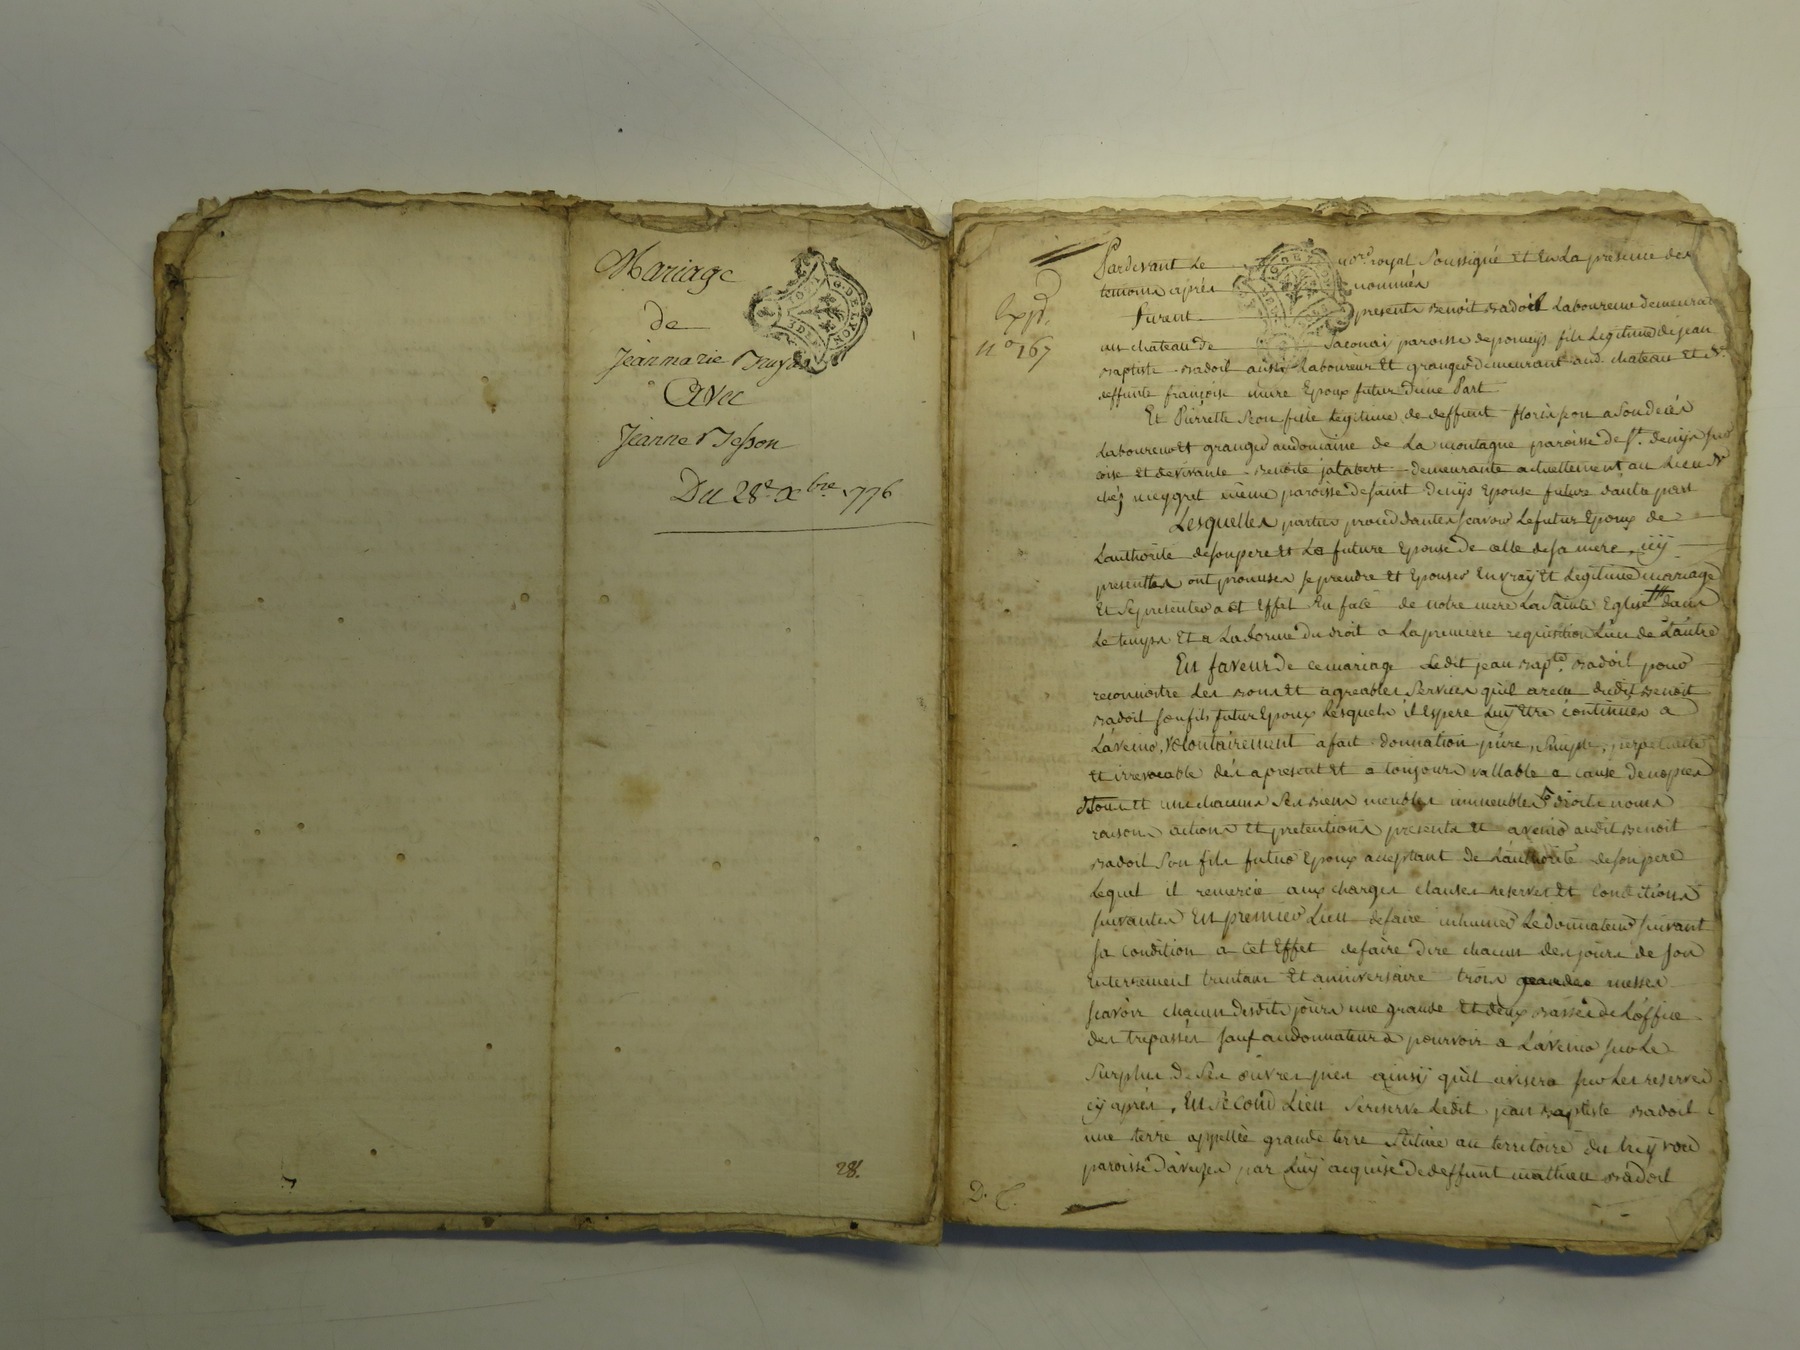 Mariage
de
Jeanmarie
Avec
Jeanne Besson
Du 28e Xbre 1776
28f.
Expd.
n° 167
Pardevant Le nore. royal soussigné et En La présence des
temoins après nommés
furent présents Benoit Badoil Laboureur demeurant
au chateau de Saconai paroisse de pomeys fils Legitime de jean
Baptiste Badoil aussi Laboureur Et granger demeurant aud. chateau Et de
deffunte françoise mure Epoux futur d'une Part
Et Pierrette Seon fille Legitime de deffunt floris seon a son décès
Laboureur Et granger au domaine de La montagne paroisse de st. denijs sur
coise Et de vivante Benoite jalabert demeurante actuellement au Lieu de
chéz meygret même paroisse de saint denijs Epouse future d'autre part
Lesquelles parties procédantes sçavoir Le futur Epoux de
L'authorite de son pere Et La future Epouse de celle de sa mere, icij
presentes ont promises se prendre Et Epouser En vraij Et Legitime mariage
Et se presenter a cet Effet En face de notre mere La Sainte Eglise dans
Le temps Et a La forme du droit a La premiere requisition L'un de L'autre
En faveur de ce mariage Ledit jean Bapte. Badoil pour
reconnoitre Les Bons Et agreables services qu'il a recu dudit Benoit
Badoil son fils futur Epoux Lesquels il Espere Luij Etre continués a
L'avenir, volontairement a fait donnation pure, simple, perpetuelle
Et irrevocable dès a present Et a toujours vallable a cause de nopces
de tous Et un chacuns ses Biens meubles immeubles droits noms
raisons actions Et pretentions presents Et avenir audit Benoit
Badoil son fils futur Epoux acceptant de L'authorité de son pere
Lequel il remercie aux charges clauses reserves Et conditions
suivantes En premier Lieu de faire inhumer Le donnateur suivant
sa condition a cet Effet de faire dire chacun des jours de son
Enterrement trantain Et anniversaire trois grandes messes
sçavoir chacun desdits jours une grande Et deux Basses de L'office
des trépassés sauf au donnateur a pourvoir a L'avenir sur Le
Surplus de Ses œuvres pies ainsij qu'il avisera sur Les reserves
cij après, En Second Lieu Se reserve Ledit jean Baptiste Badoil
une terre appellée grande terre Située au territoire du
paroisse d'aveize par Luij acquise de deffunt mathieu Badoil
D. C.